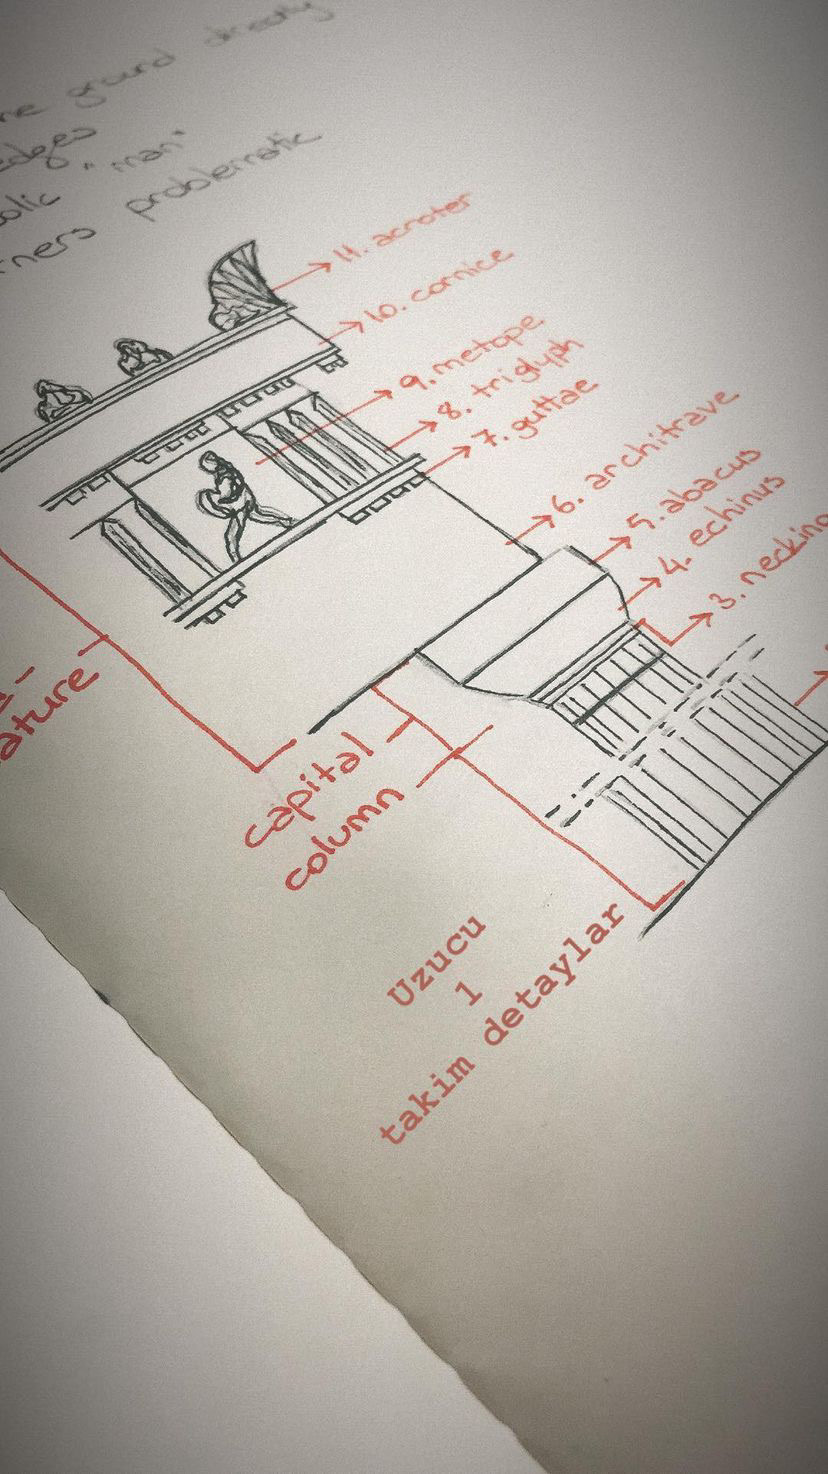 ground directly
edges
"man"
problematic
11. acroter
10. cornice
9. metope
8. triglyph
7. guttae
6. architrave
5. abacus
4. echinus
3. necking
ature
capital
column
Uzucu
1
takim detaylar